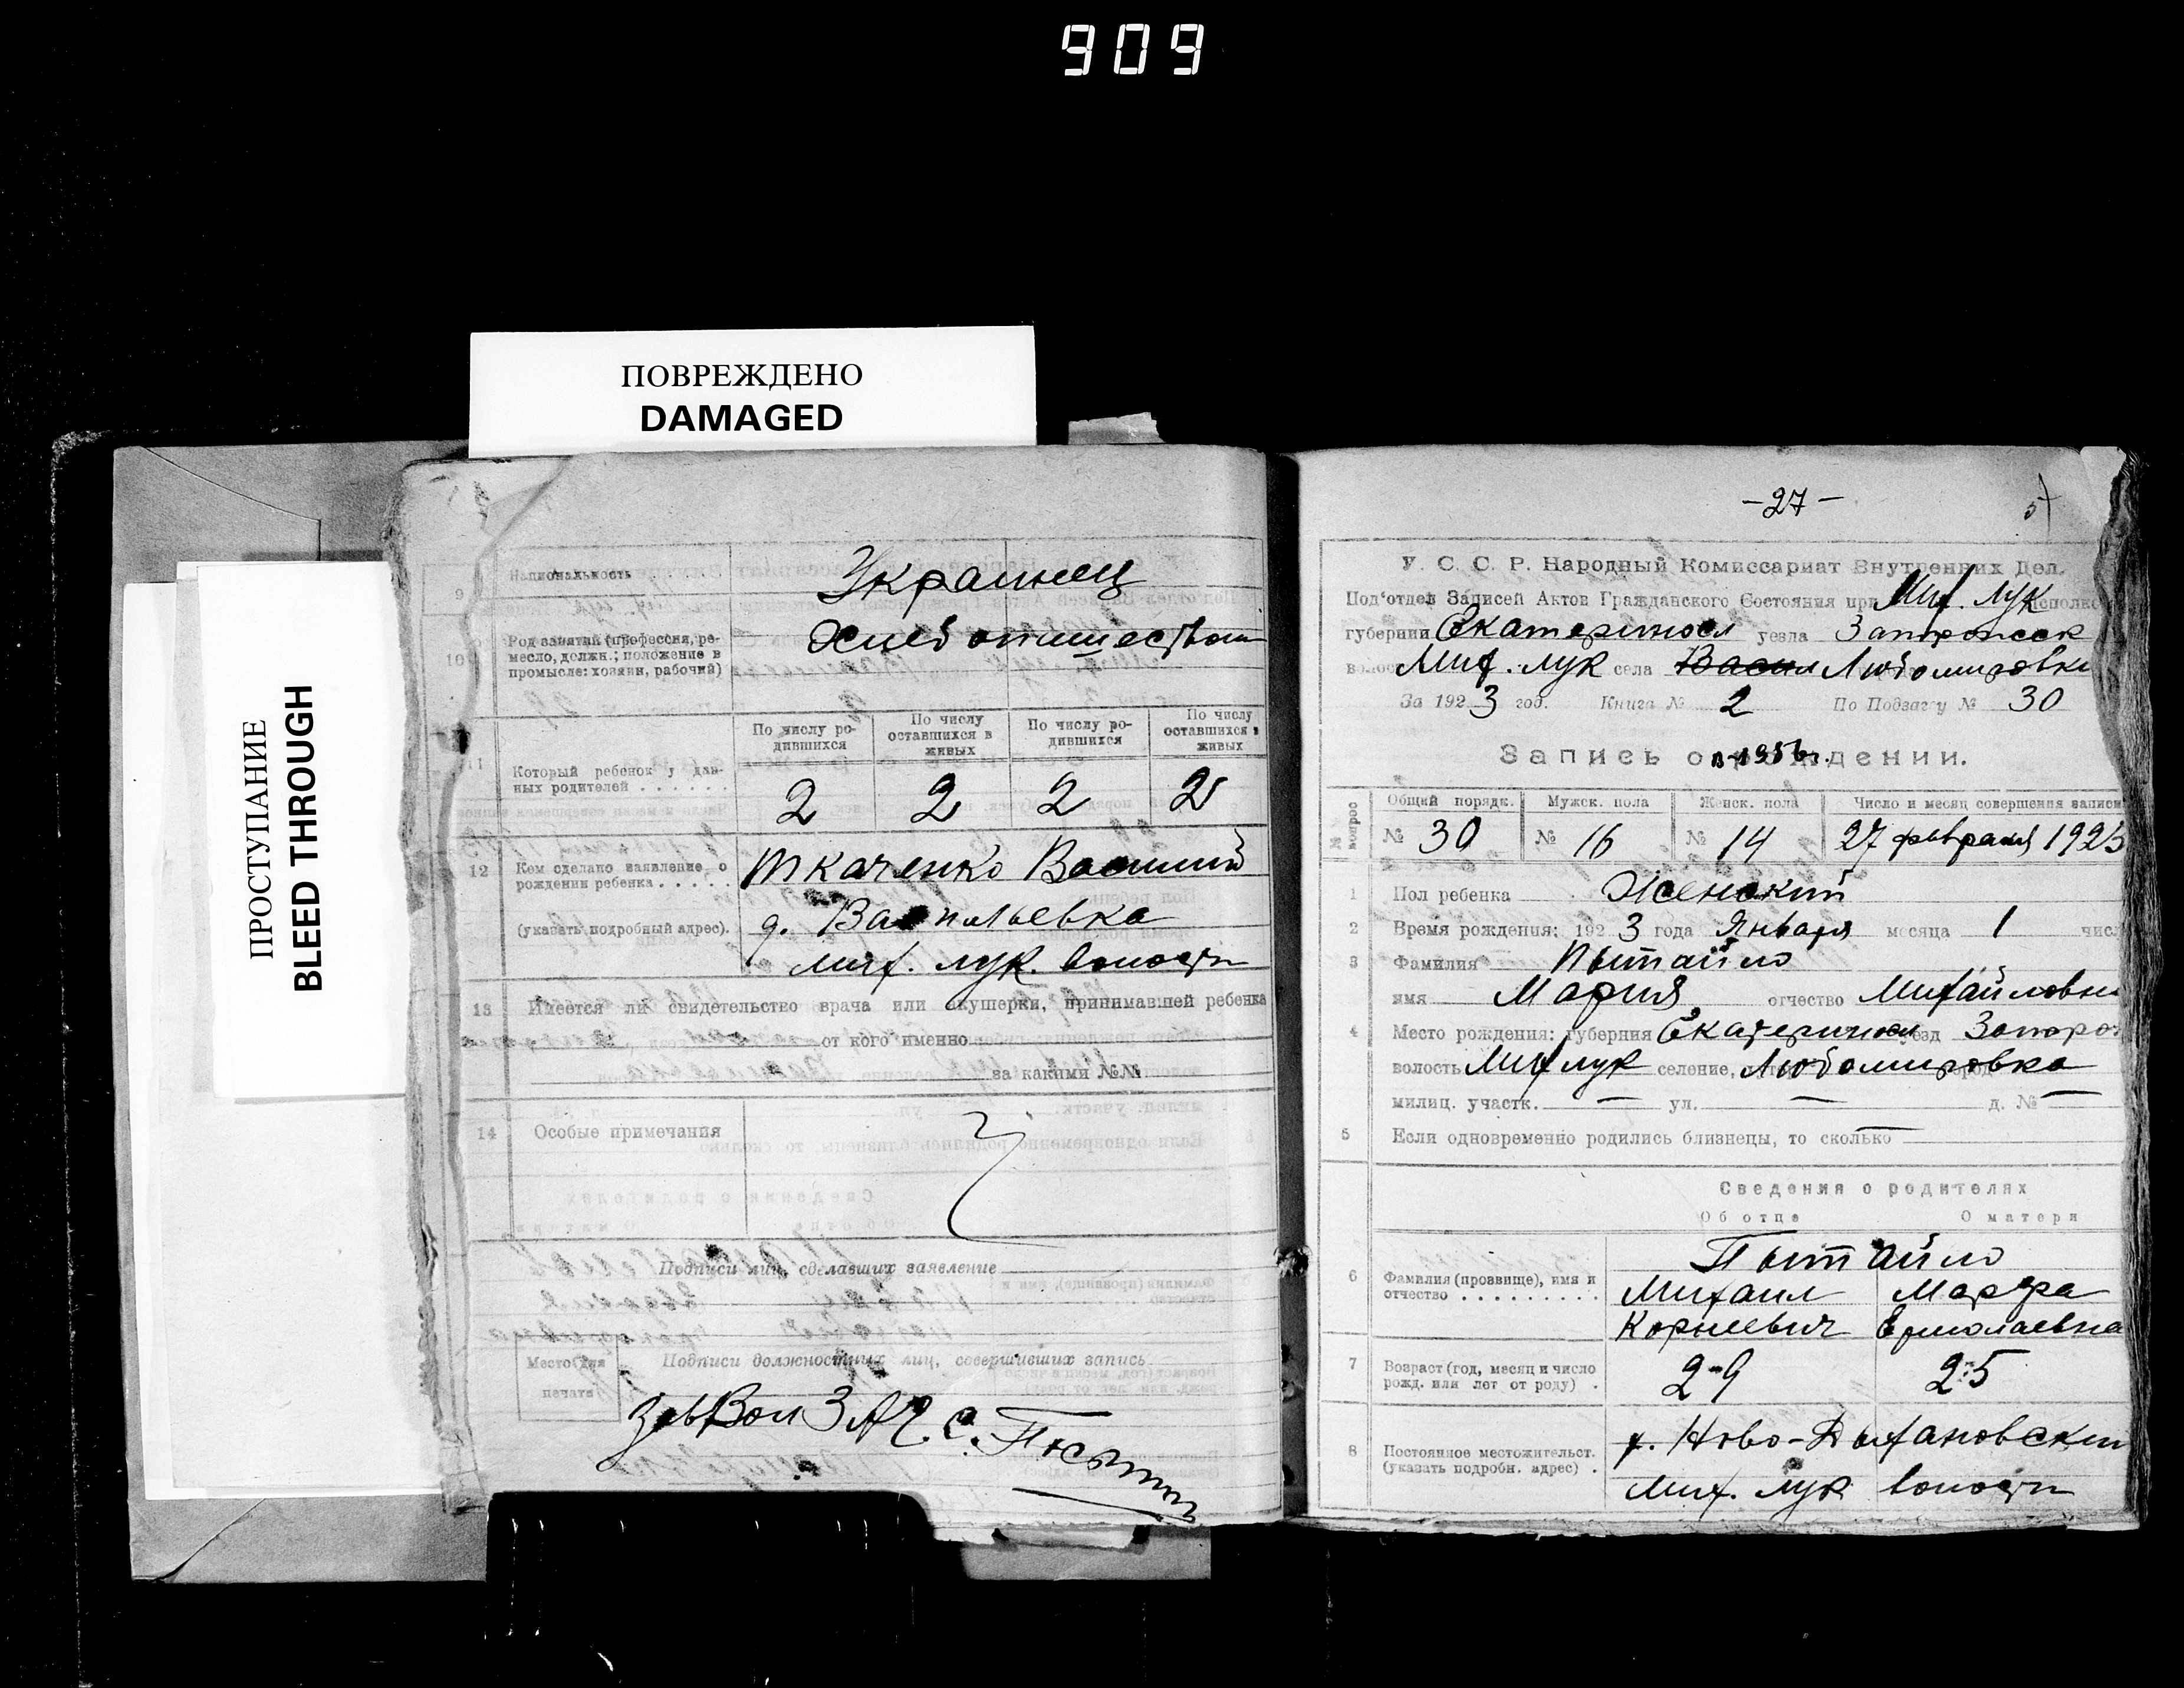 909
ПОВРЕЖДЕНО
DAMAGED
ПРОСТУПАНИЕ
BLEED THROUGH
9 Национальность Украинец
10 Род занятий (профессия, ре-
месло, должн.; положение в
промысле: хозяин, рабочий)
Хлебопашеством
11 Который ребенок у дан-
ных родителей . . . . . .
По числу ро-
дившихся
По числу
оставшихся в
живых
По числу ро-
дившихся
По числу
оставшихся в
живых
2 2 2 2
12 Кем сделано заявление о
рождении ребенка . . . . .
(указать подробный адрес).
Ткаченко Василий
д. Васильевка
Мих. Лук. волости
13 Имеется ли свидетельство врача или акушерки, принимавшей ребенка
от кого именно
за какими №№
14 Особые примечания
Подписи лиц, сделавших заявление
Место для
печати
Подписи должностных лиц, совершивших запись
ЗавВолЗАГС
-27-
У. С. С. Р. Народный Комиссариат Внутренних Дел.
Под'отдел Записей Актов Гражданского Состояния при Мих. Лук Исполк
губернии Екатериносл уезда Запорожск
волос Мих. Лук села Васил Любомировки
За 1923 год. Книга № 2 По Подзагсу № 30
Запись о рождении.
в-1956г.
№ вопрос
Общий порядк. Мужск. пола Женск. пола Число и месяц совершения записи
№ 30 № 16 № 14 27 февраля 1923
1 Пол ребенка Женский
2 Время рождения: 1923 года Января месяца 1 числ
3 Фамилия Пытайло
имя Мария отчество Михайловн
4 Место рождения: губерния Екатериносл уезд Запорож
волость Мих Лук селение, Любомировка
милиц. участк. — ул. — д. № —
5 Если одновременно родились близнецы, то сколько —
Сведения о родителях
Об отце О матери
6 Фамилия (прозвище), имя и
отчество . . . . . . . . .
Пытайло
Михаил Марфа
Корнеевич Ермолаевна
7 Возраст (год, месяц и число
рожд. или лет от роду) .
29 25
8 Постоянное местожительст.
(указать подробн. адрес) .
Мих. Лук волости